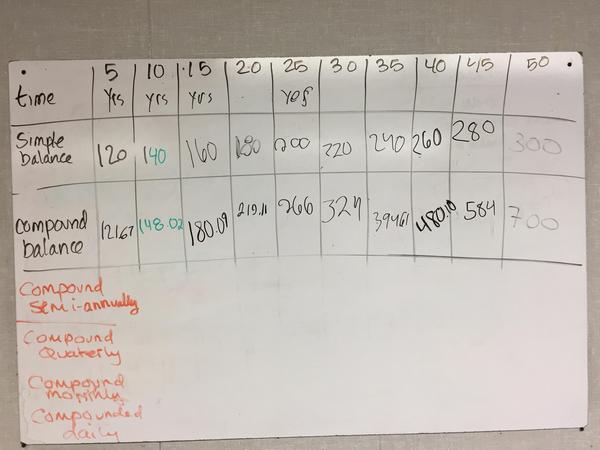 5 10 15 20 25 30 35 40 45 50
time yrs yrs yrs yrs
Simple
balance 120 140 160 180 200 220 240 260 280 300
Compound
balance 121.67 148.02 180.09 219.11 266 324 394.61 480.10 584 700
Compound
semi-annually
Compound
Quaterly
Compound
monthly
Compounded
daily